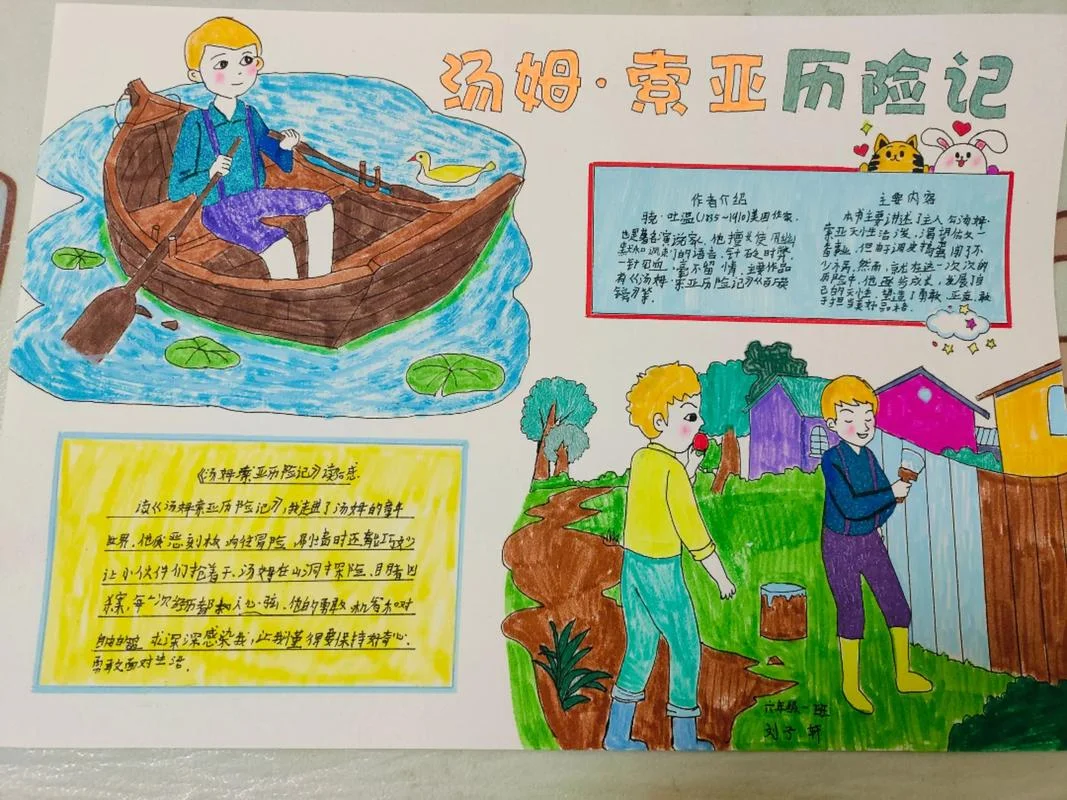 汤姆·索亚历险记
作者介绍
马克·吐温(1835~1910)美国作家、
也是著名演说家,他擅长使用幽
默和讽刺的语言,针砭时弊,
一针见血,毫不留情,主要作品
有《汤姆·索亚历险记》《百万英
镑》等。
主要内容
本书主要讲述了主人公汤姆·
索亚天性活泼,渴望
但
少祸,然而,就在这一次次的
历险中,他逐步成长,发展了自
己的天性,塑造了勇敢、正直、敢
于担当美好品格.
《汤姆索亚历险记》读后感
读《汤姆索亚历险记》,我走进了汤姆的童年
世界.他顽皮向往冒险,刷墙时还能巧妙
让小伙伴们抢着干、汤姆在山洞中探险、目睹凶
案,每一次经历都扣人心弦、他的勇敢、机智和对
自由的追求深深感染我,让我懂得要保持好奇心、
勇敢面对生活.
六年级一班
刘子轩